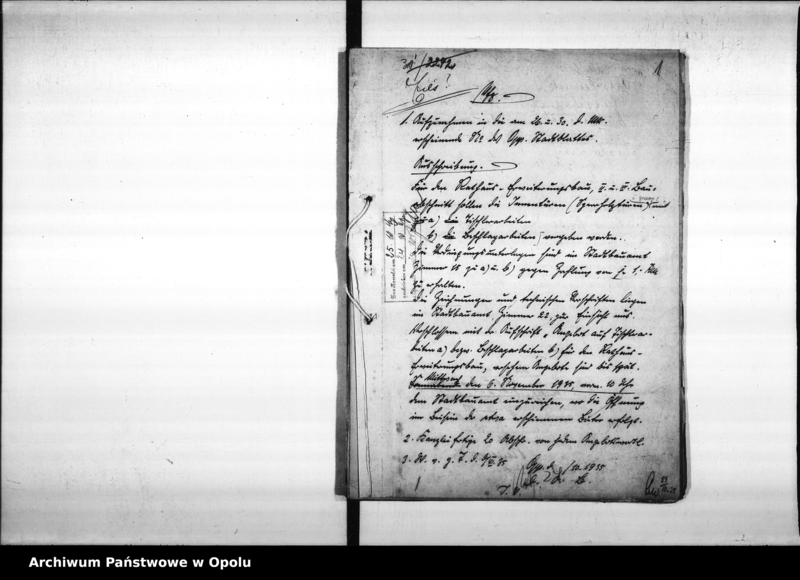 1
Eilt!
1. Aufzunehmen in die am 26. u. 30. d. Mts.
erscheinende Nr. des Opp. Stadtblattes.
Ausschreibung.
Für den Rathaus-Erweiterungsbau, I. u. II. Bau-
abschnitt sollen die Innentüren (Sperrholztüren) und
zwar a) die Tischlerarbeiten
b) die Beschlagarbeiten vergeben werden.
Die Bedingungsunterlagen sind im Stadtbauamt
Zimmer 15 zu a) u. b) gegen Zahlung von je 1,- RM
zu erhalten.
Die Zeichnungen und technischen Vorschriften liegen
im Stadtbauamt, Zimmer 22, zur Einsicht aus.
Verschlossen mit der Aufschrift "Angebot auf Tischlerar-
beiten a) bezw. Beschlagarbeiten b) für den Rathaus-
Erweiterungsbau" versehene Angebote sind bis spät.
Mittwoch
den 6. November 1935, vorm. 10 Uhr
dem Stadtbauamt einzureichen, wo die Öffnung
im Beisein der etwa erschienenen Bieter erfolgt.
2. Kanzlei fertige 20 Abschr. von jedem
3.
Opp. d. 1935
Archiwum Państwowe w Opolu